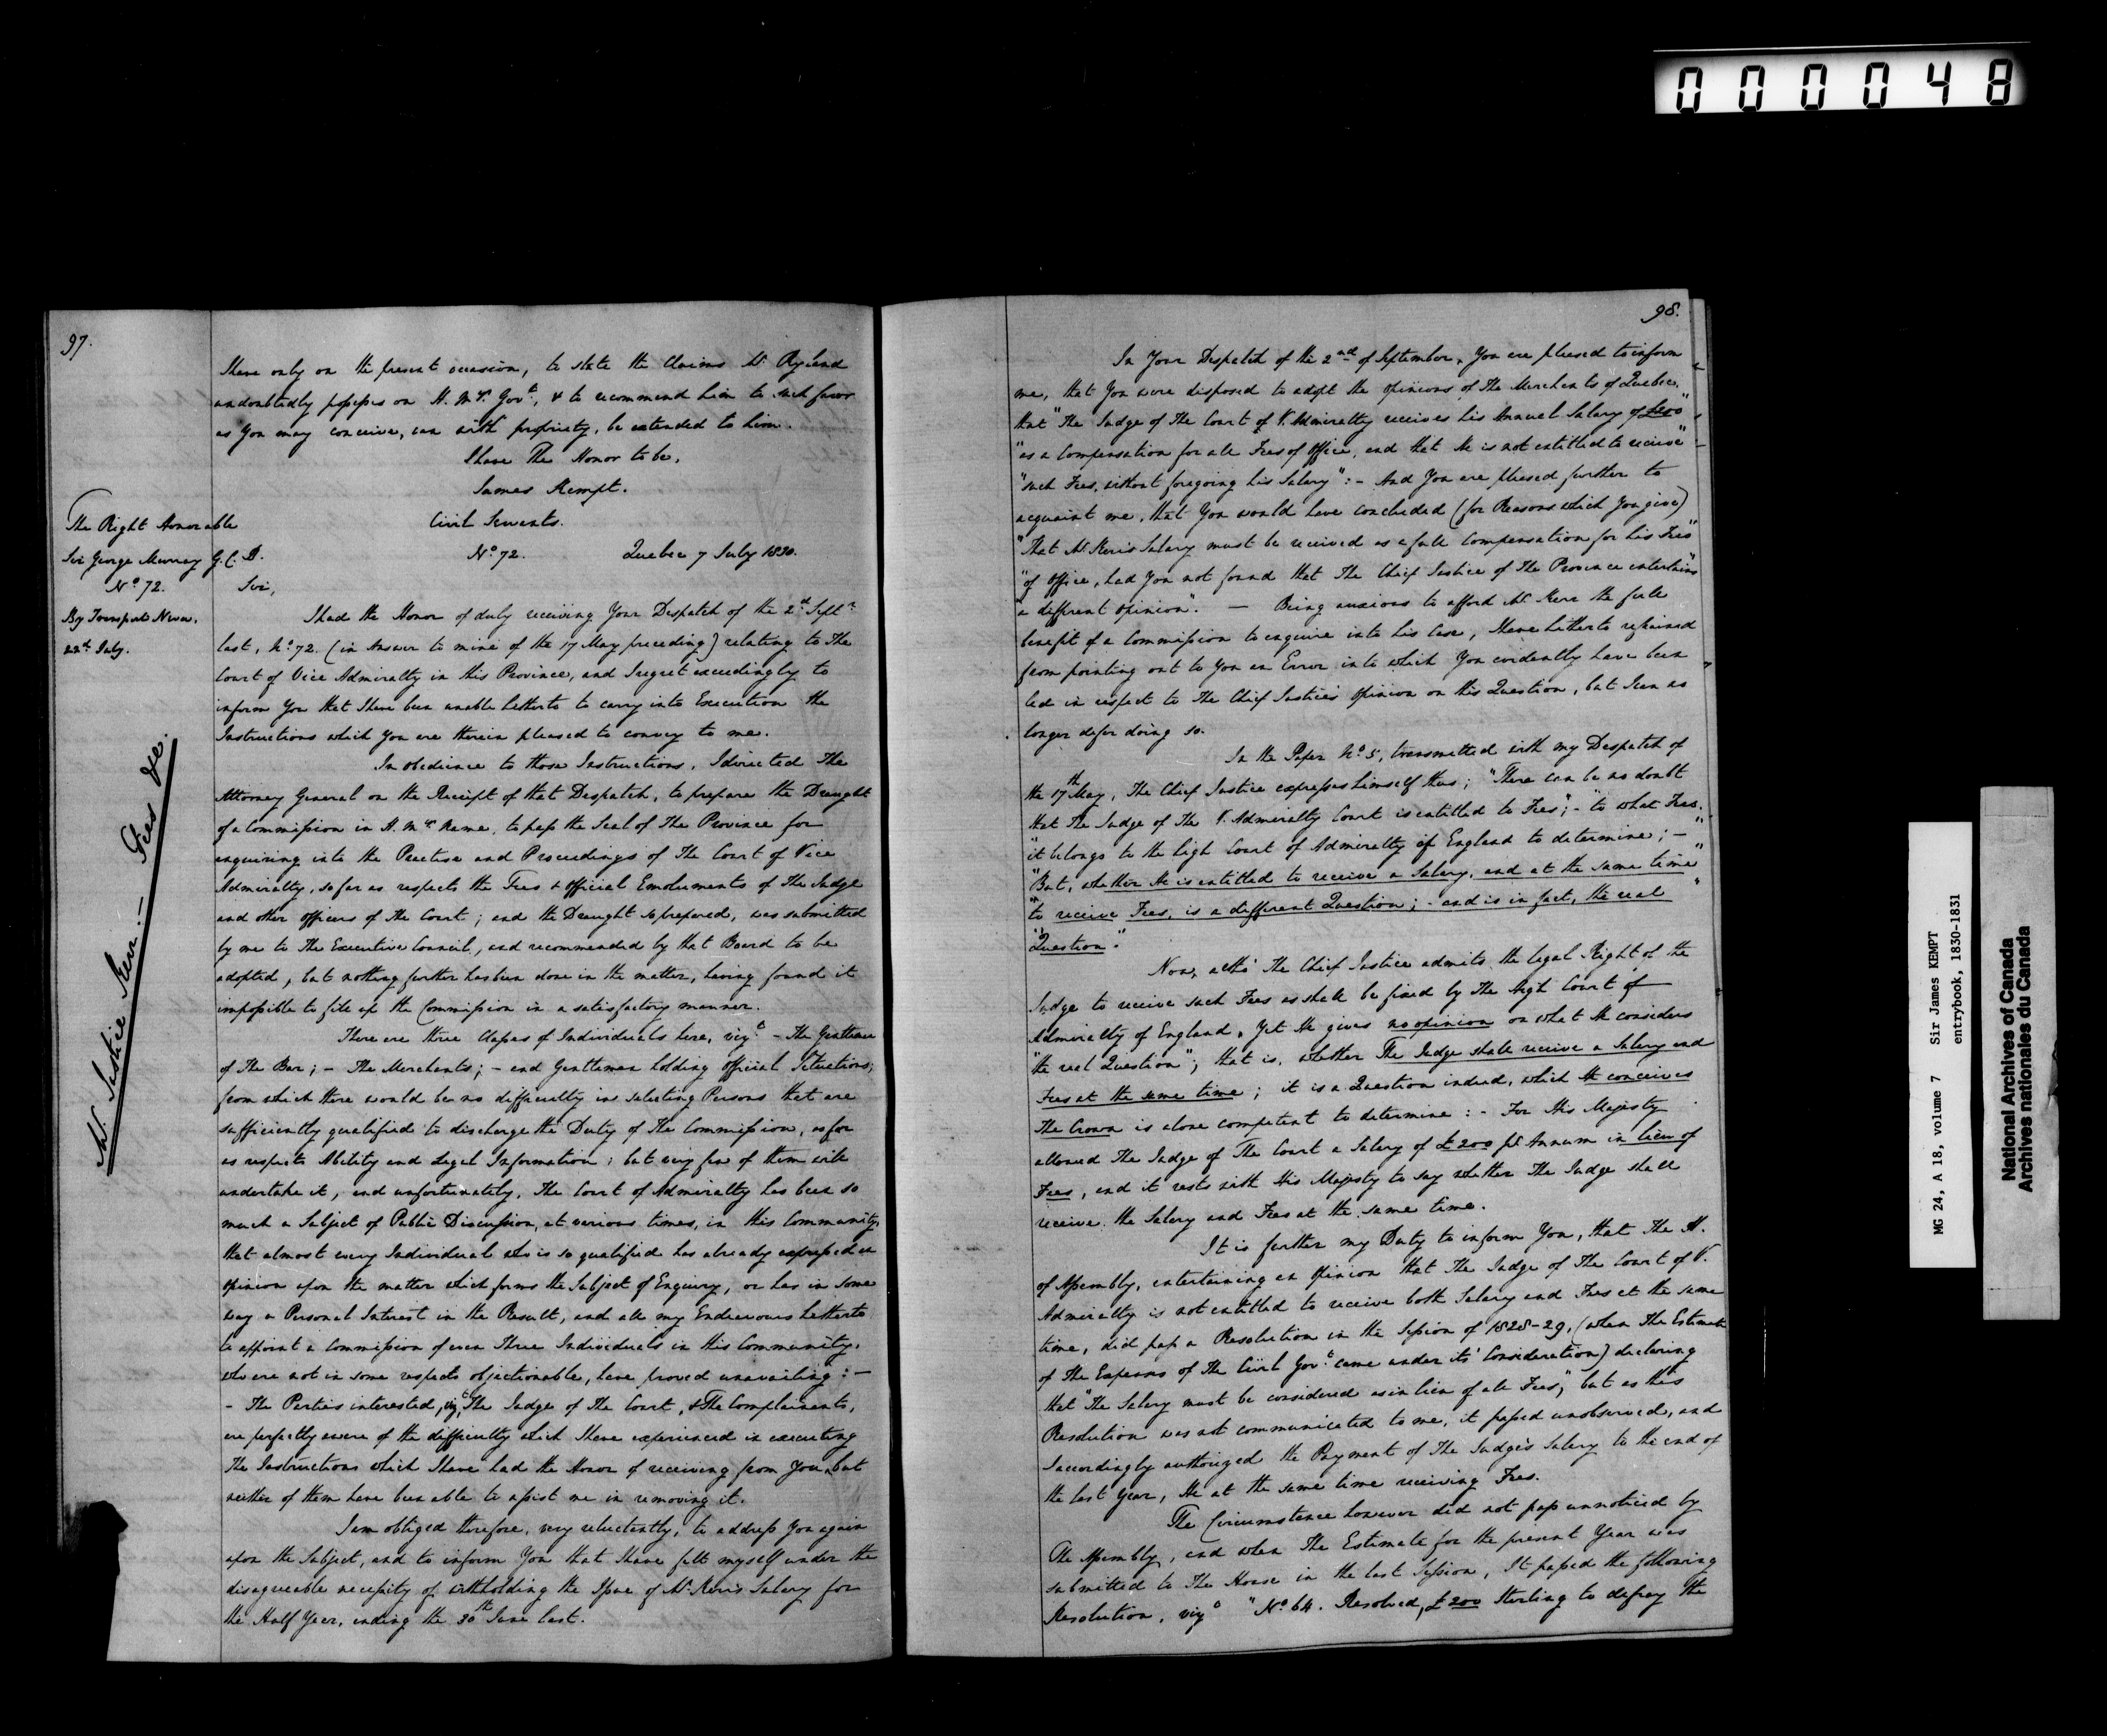 000048
97.
I have only on the present occasion, to state the Claims Mr. Ryland
undoubtedly possesses on H. M's. Govt., & to recommend him to such favor
as You may conceive, can with propriety, be extended to him.
I have The Honor to be,
James Kempt.
The Right Honorable
Sir George Murray G.C.B.
No. 72.
By Transport Neva,
22d. July.
Civil Servants.
No. 72. Quebec 7 July 1830.
Sir,
I had the Honor of duly receiving Your Despatch of the 2d. Septr.
last, No. 72. (in Answer to mine of the 17 May preceding) relating to The
Court of Vice Admiralty in this Province, and I regret exceedingly to
inform You that I have been unable hitherto to carry into Execution the
Instructions which You are therein pleased to convey to me.
Mr. Justice Kerr :— Fees &c.
In obedience to those Instructions, I directed The
Attorney General on the Receipt of that Despatch, to prepare the Draught
of a Commission in H. M's. Name, to pass the Seal of The Province for
enquiring into the Practice and Proceedings of The Court of Vice
Admiralty, so far as respects the Fees & Official Emoluments of The Judge
and other Officers of the Court; and the Draught so prepared, was submitted
by me to The Executive Council, and recommended by that Board to be
adopted, but nothing further has been done in the matter, having found it
impossible to fill up the Commission in a satisfactory manner.
There are three Classes of Individuals here, vizt. – The Gentlemen
of The Bar; – The Merchants; – and Gentlemen holding Official Situations;
from which there would be no difficulty in selecting Persons that are
sufficiently qualified to discharge the Duty of the Commission, as far
as respects Ability and Legal Information; but very few of them will
undertake it, and unfortunately, The Court of Admiralty has been so
much a Subject of Public Discussion, at various times, in this Community,
that almost every Individual who is so qualified has already expressed an
opinion upon the matter which forms the Subject of Enquiry, or has in some
way a Personal Interest in the Result, and all my Endeavours hitherto
to appoint a Commission of even Three Individuals in this Community,
who are not in some respects objectionable, have proved unavailing: —
– The Parties interested, vizt, The Judge of The Court, & The Complainants,
are perfectly aware of the difficulty which I have experienced in executing
the Instructions which I have had the Honor of receiving from You, but
neither of them have been able to assist me in removing it.
I am obliged therefore, very reluctantly, to address You again
upon the Subject, and to inform You that I have felt myself under the
disagreeable necessity of withholding the Issue of Mr. Kerr's Salary for
the Half Year, ending the 30th June last.
98.
In Your Despatch of the 2nd of September, You are pleased to inform
me, that You were disposed to adopt the opinions of The Merchants of Quebec,
that "The Judge of The Court of V. Admiralty receives his Annual Salary of £200"
"as a Compensation for all Fees of Office, and that He is not entitled to receive"
"such Fees, without foregoing his Salary": – And You are pleased further to
acquaint me, that You would have concluded (for Reasons which You give)
"That Mr. Kerr's Salary must be received as a full Compensation for his Fees"
"of Office, had You not found that The Chief Justice of The Province entertains"
"a different opinion". — Being anxious to afford Mr. Kerr the full
benefit of a Commission to enquire into his Case, I have hitherto refrained
from pointing out to You an Error into which You evidently have been
led in respect to The Chief Justice's Opinion on this Question, but I can no
longer defer doing so.
In the Paper No. 5, transmitted with my Despatch of
the 17th May, The Chief Justice expresses himself thus; "There can be no doubt
that The Judge of The V. Admiralty Court is entitled to Fees"; – "to what Fees,"
"it belongs to the High Court of Admiralty of England to determine; –"
"But, whether He is entitled to receive a Salary, and at the same time"
"to receive Fees, is a different Question; – and is in fact, the real"
"Question."
Now, altho' The Chief Justice admits the legal Right of the
Judge to receive such Fees as shall be fixed by The High Court of
Admiralty of England, Yet He gives no opinion on what He considers
"the real Question"; that is, whether The Judge shall receive a Salary and
Fees at the same time; it is a Question indeed, which He conceives
The Crown is alone competent to determine: – For His Majesty
allowed The Judge of The Court a Salary of £200 pr. Annum in lieu of
Fees, and it rests with His Majesty to say whether The Judge shall
receive the Salary and Fees at the same time.
It is further my Duty to inform You, that The H.
of Assembly, entertaining an Opinion that The Judge of The Court of V.
Admiralty is not entitled to receive both Salary and Fees at the same
time, did pass a Resolution in the Session of 1828-29, (when The Estimate
of the Expenses of The Civil Govt. came under its' Consideration) declaring
that "The Salary must be considered as in lieu of all Fees," but as this
Resolution was not communicated to me, it passed unobserved, and
I accordingly authorized the Payment of The Judge's Salary to the end of
the last Year, He at the same time receiving Fees.
The Circumstance however did not pass unnoticed by
The Assembly, and when The Estimate for the present Year was
submitted to The House in the last Session, It passed the following
Resolution, vizt "No. 64. Resolved, £200 Sterling to defray the
MG 24, A 18, volume 7 Sir James KEMPT
entrybook, 1830-1831
National Archives of Canada
Archives nationales du Canada